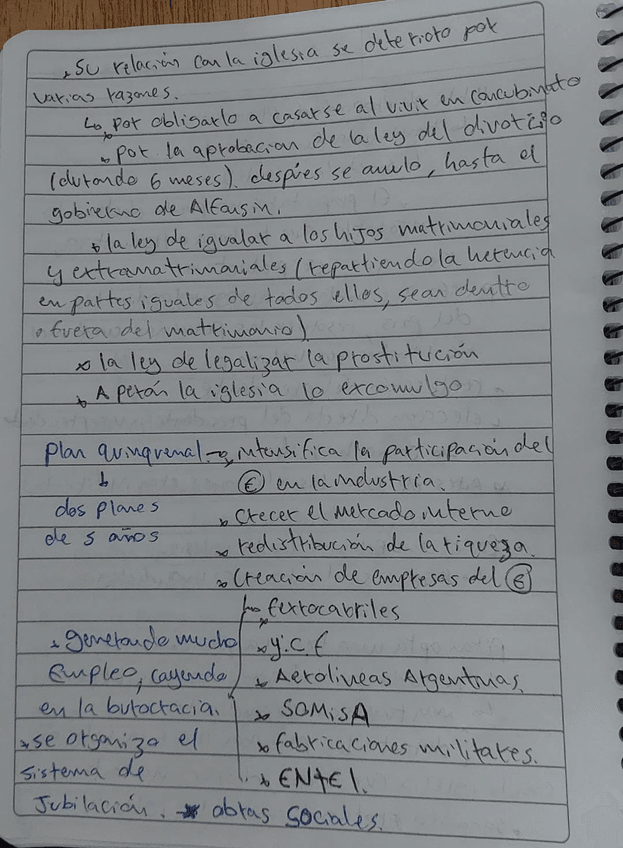 • Su relación con la iglesia se deterioro por
varias razones.
↳ por obligarlo a casarse al vivir en concubinato
• por la aprobacion de la ley del divorcio
(durando 6 meses). despúes se anulo, hasta el
gobierno de Alfonsin.
• la ley de igualar a los hijos matrimoniales
y extramatrimoniales (repartiendo la herencia
en partes iguales de todos ellos, sean dentro
o fuera del matrimonio)
• la ley de legalizar la prostitución
• A perón la iglesia lo excomulgo
Plan quinquenal → intensifica la participación del
Ⓔ en la industria.
dos planes
de 5 años
• Crecer el mercado interno
• redistribución de la riqueza.
• Creación de empresas del Ⓔ
• ferrocarriles
• y.C.F
• Aerolineas Argentinas.
• SOMISA
• fabricaciones militares.
• ENTEL.
• generando mucho
Empleo, cayendo
en la burocracia.
• se organiza el
sistema de
Jubilación. • obras sociales.